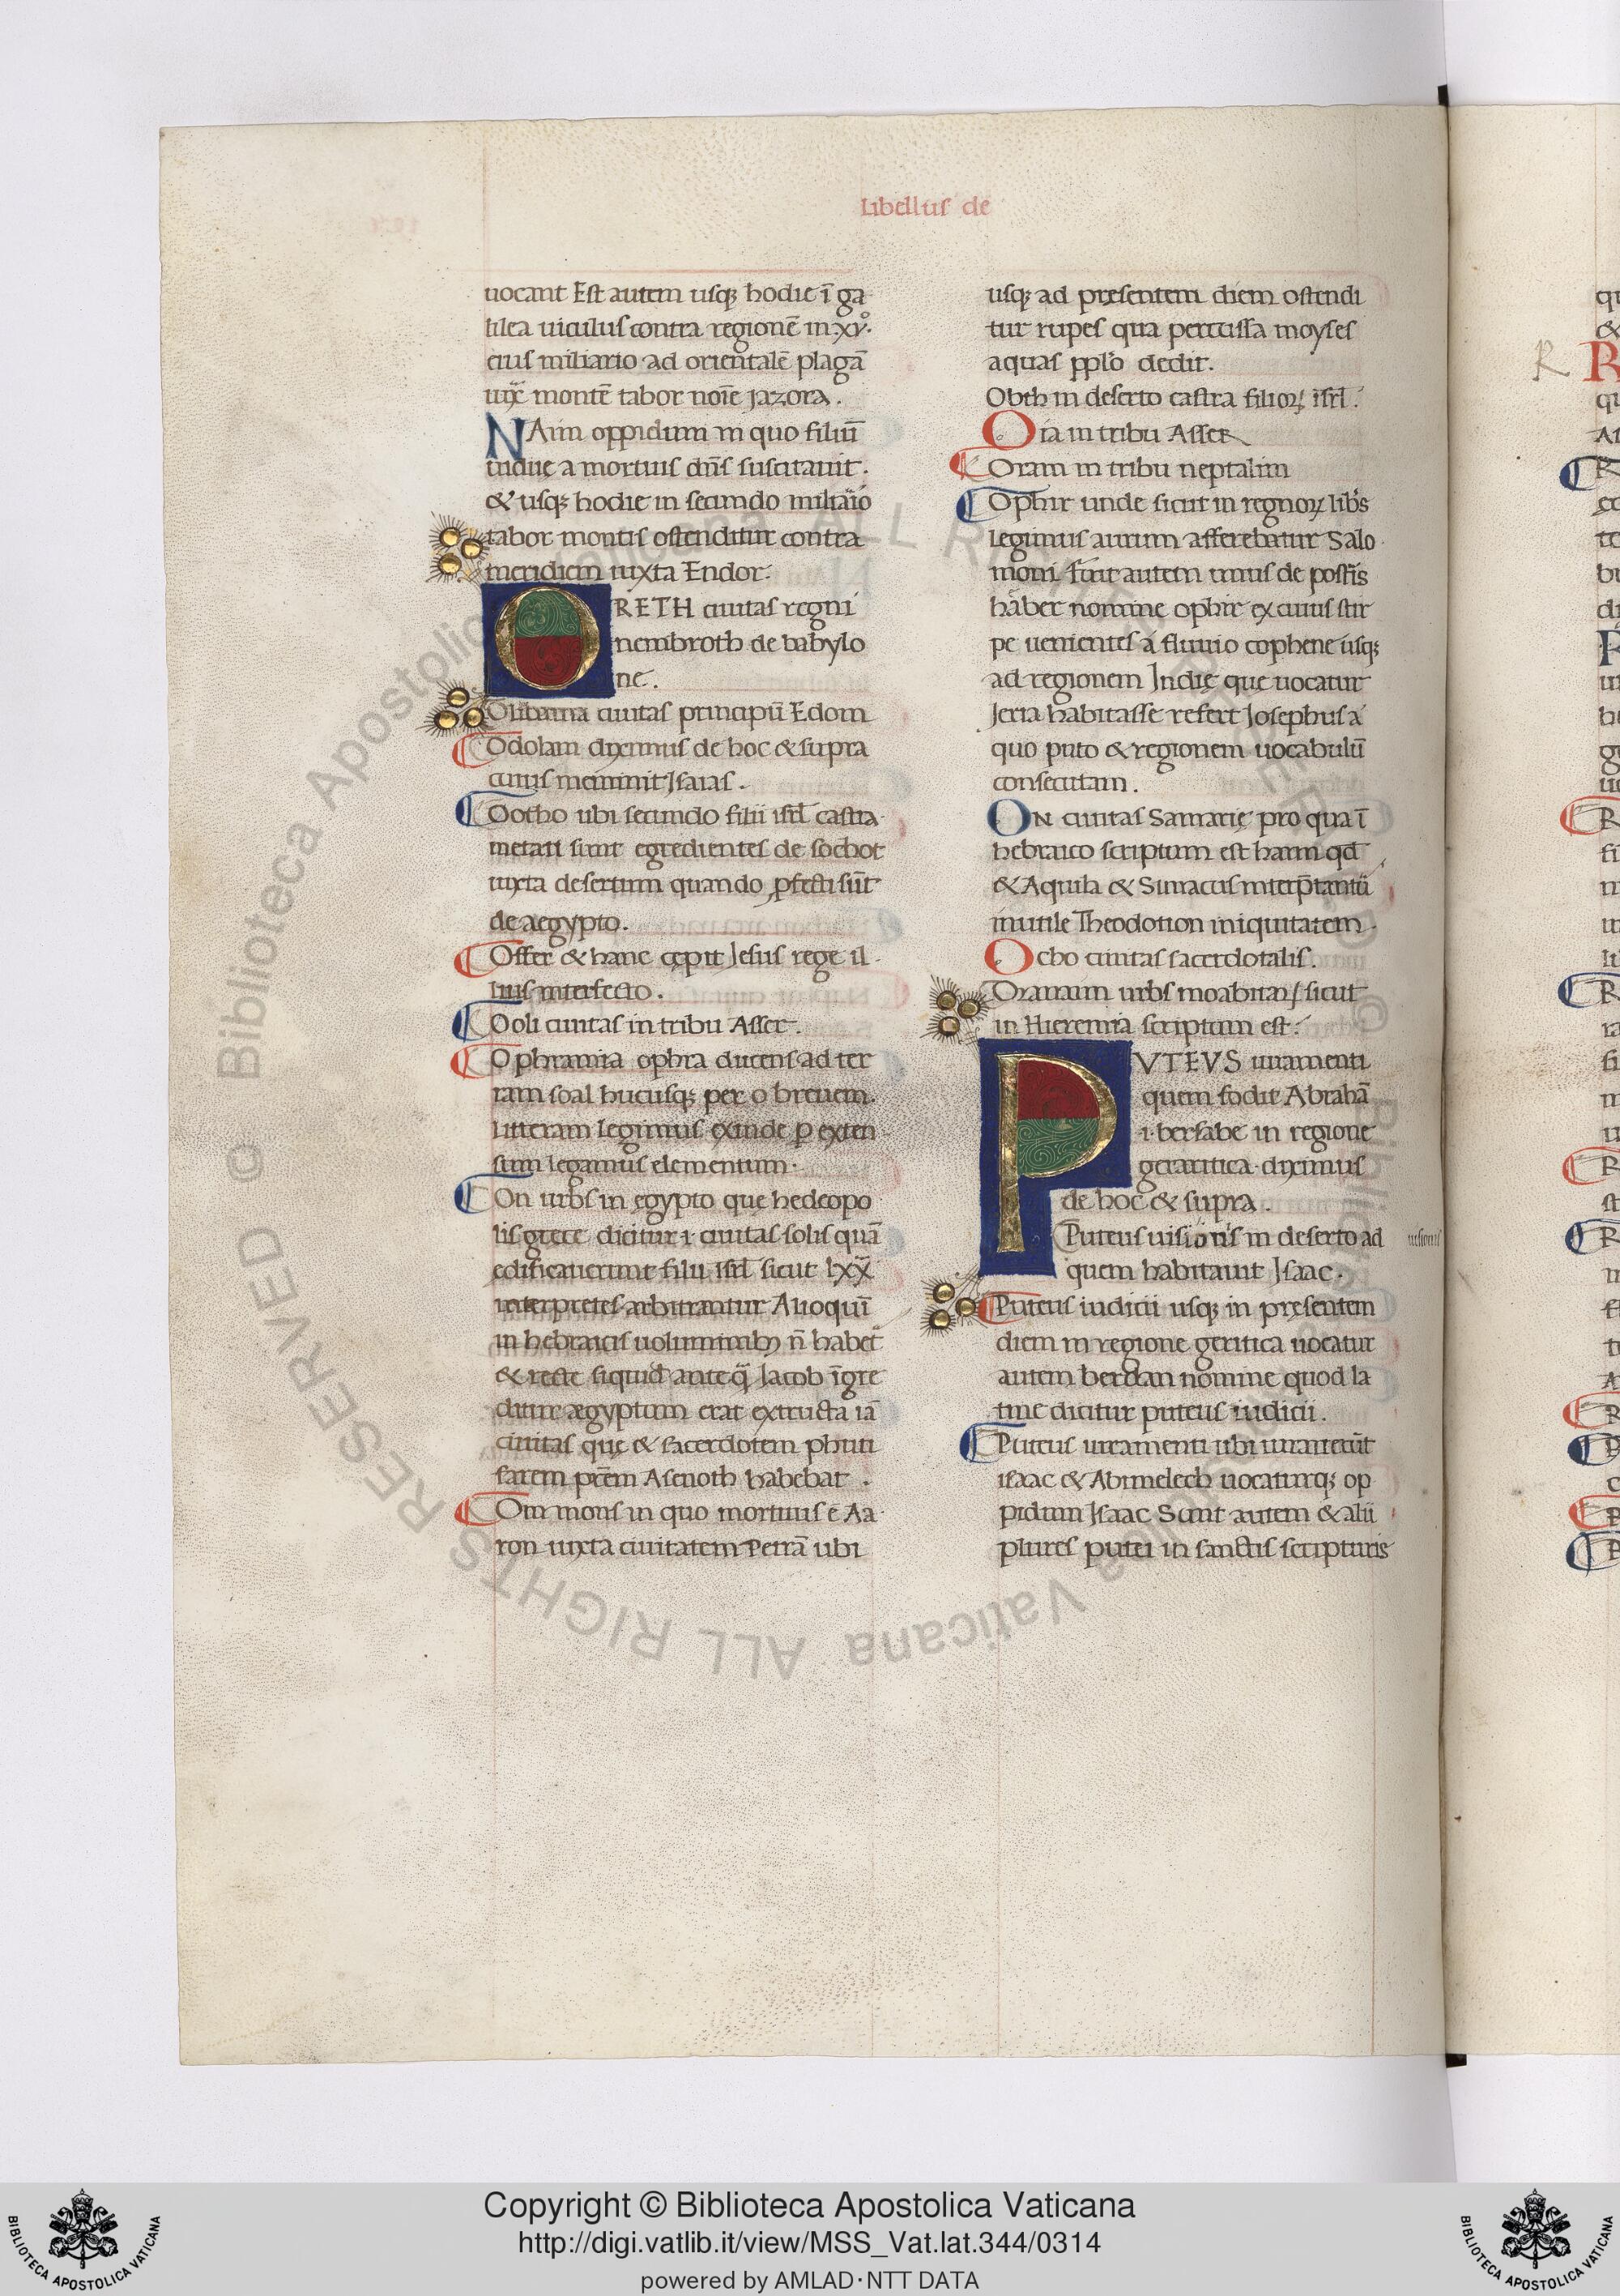 Libellus de
uocant Est autem usqꝫ hodie ī ga
lilea uiculus contra regionē in .xvº.
eius miliario ad orientalē plagā
iuxͣ montē tabor noīe Jazora.
NAim oppidum in quo filiū
uidue a mortuis dn̄s suscitauit.
& usqꝫ hodie in secundo miliaīo
tabor montis ostenditur contra
meridiem iuxta Endor.
ORETH ciuitas regni
nembroth de babylo
ne.
Olibama ciuitas principū Edom
Odolam diximus de hoc & supra
cuius meminit Isaias.
Ootho ubi secundo filii isrl̄ castra
metati sunt egredientes de sochot
iuxta desertum quando ꝓfecti sūt
de aegypto.
Offer & hanc cępit Iesus rege il
lius interfecto.
Ooli ciuitas in tribu Asser.
Ophramia ophra ducens ad ter
ram soal hucusqꝫ per o breuem.
litteram legimus exinde ꝑ exten
sum legamus elementum.
On urbs in ęgypto que hedeopo
lis grece dicitur .i. ciuitas solis quā
edificauerunt filii Isrl̄ sicut lxx̄
interpretes arbitrantur Alioquī
in hebraicis uoluminibꝫ n̄ habet̄
& recte siquid ante q̄ Iacob īgre
ditur ægyptum erat extructa iā
ciuitas que & sacerdotem phuti
farem pr̄em Asenoth habebat.
Om mons in quo mortuus ē Aa
ron iuxta ciuitatem Petrā ubi
usqꝫ ad presentem diem ostendi
tur rupes qua percussa moyses
aquas pplo dedit.
Obth in deserto castra filioꝝ isrl̄.
Oia in tribu Asser
Oram in tribu neptalim
Ophir unde sicut in regnoꝝ libis
legimus aurum afferebatur Salo
moni fuit autem unus de posteris
haber nomine ophir ex cuius stir
pe uenientes a fluuio cophene usqꝫ
ad regionem Indię que uocatur
Ieria habitasse refert Iosephus a
quo puto & regionem uocabulū
consecutam.
ON ciuitas Samarię pro qua ī
hebraico scriptum est harm qd̄
& Aquila & Simacus interp̄tantū
inutile Theodotion iniquitatem.
Ocho ciuitas sacerdotalis.
Oranaim urbs moabitaꝝ sicut
in Hieremia scriptum est.
PVTEVS iuramenti
quem fodit Abrahā
.i. bersabe in regione
geraritica. diximus
de hoc & supra.
Puteus uisionis in deserto ad
uisionis
quem habitauit Isaac.
Puteus iudicii usqꝫ in pręsentem
diem in regione geritica uocatur
autem berdan nomine quod la
tine dicitur puteus iudicii.
Puteus iuramenti ubi iurauerūt
isaac & Abimelech uocaturqꝫ op
pidum Isaac Sunt autem & alii
plures putei in sanctis scripturis
R
Copyright © Biblioteca Apostolica Vaticana
http://digi.vatlib.it/view/MSS_Vat.lat.344/0314
powered by AMLAD·NTT DATA
BIBLIOTECA APOSTOLICA VATICANA
BIBLIOTECA APOSTOLICA VATICANA
© Biblioteca Apostolica Vaticana ALL RIGHTS RESERVED